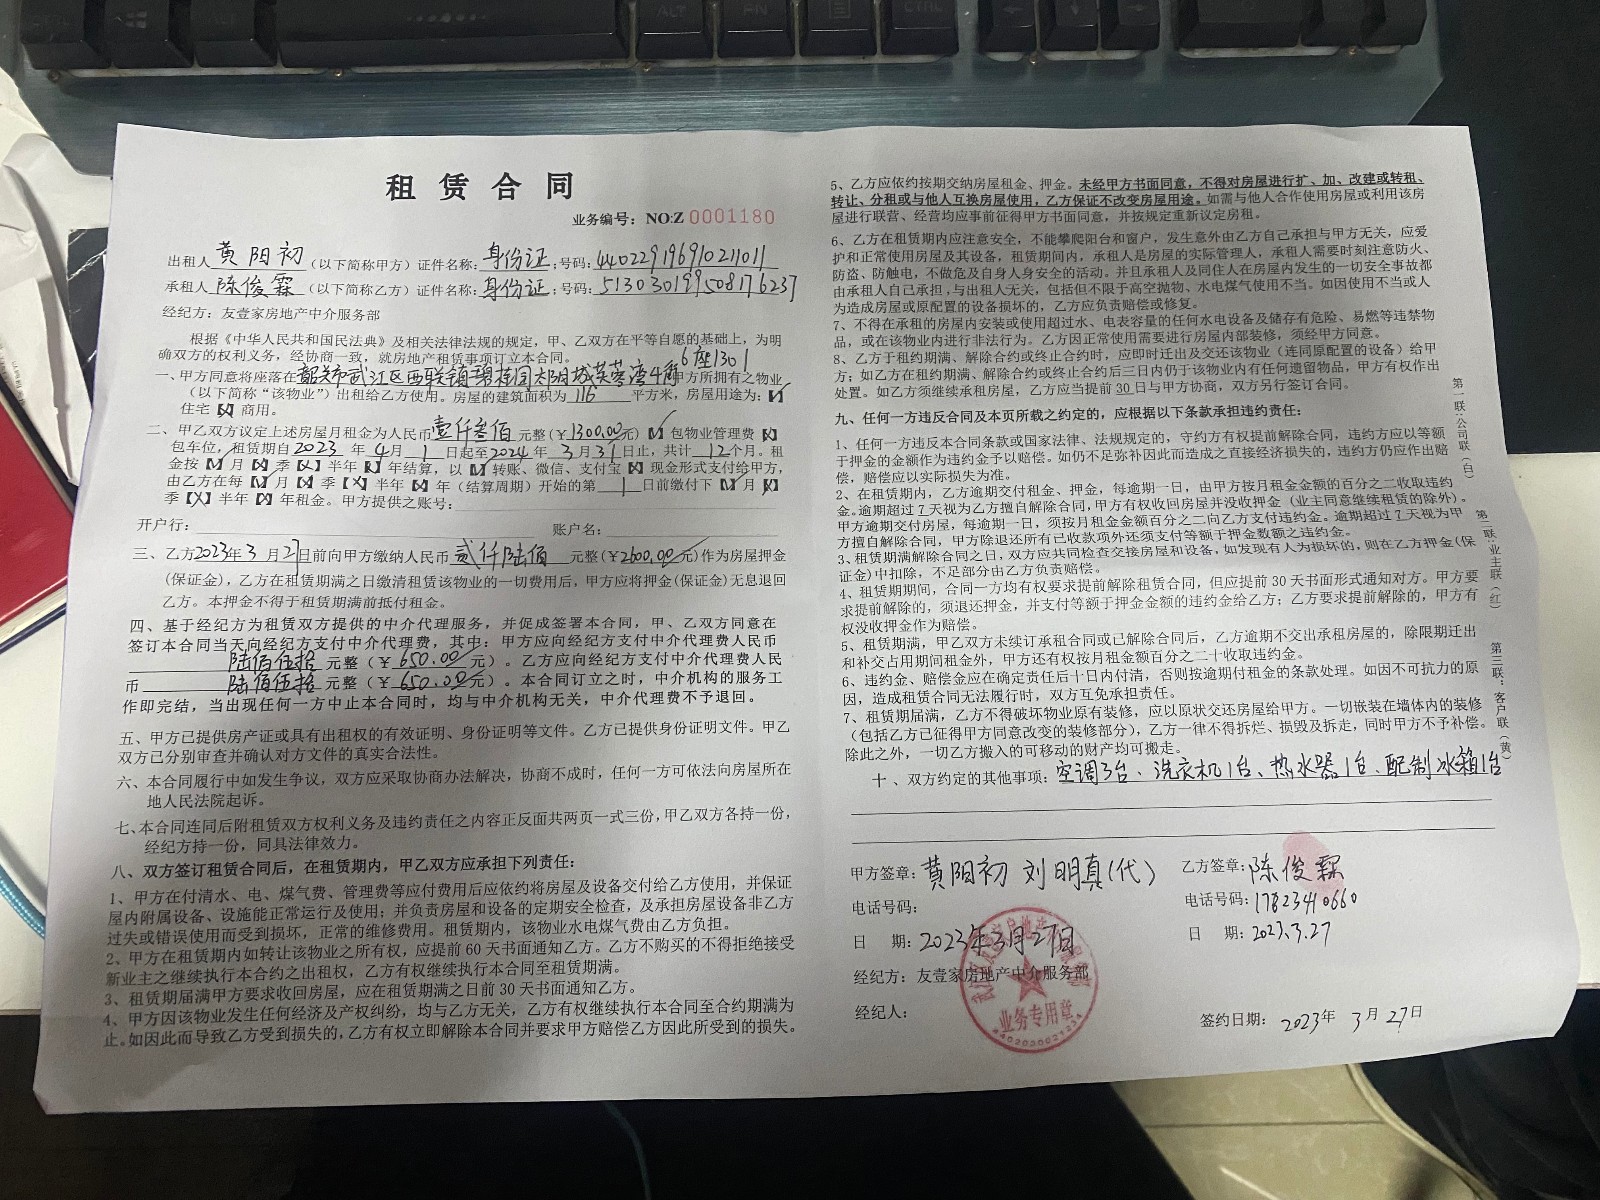 租 赁 合 同
业务编号：NO:Z 0001180
出租人 黄阳初 （以下简称甲方）证件名称：身份证；号码：440229196910211011
承租人 陈俊霖 （以下简称乙方）证件名称：身份证；号码：513030199508176237
经纪方：友壹家房地产中介服务部
根据《中华人民共和国民法典》及相关法律法规的规定，甲、乙双方在平等自愿的基础上，为明
确双方的权利义务，经协商一致，就房地产租赁事项订立本合同。
6座1301
一、甲方同意将座落在韶关市武江区西联镇碧桂园太阳城芙蓉湾4街甲方所拥有之物业
（以下简称“该物业”）出租给乙方使用。房屋的建筑面积为 116 平方米，房屋用途为：【✓】
住宅【X】商用。
二、甲乙双方议定上述房屋月租金为人民币壹仟叁佰元整（￥1300.00元）【✓】包物业管理费【X】
包车位，租赁期自2023 年 4月 1 日起至2024 年 3 月 31日止，共计 12个月。租
金按【✓】月【X】季【X】半年【X】年结算，以【✓】转账、微信、支付宝【X】现金形式支付给甲方，
由乙方在每【✓】月【X】季【X】半年【X】年（结算周期）开始的第 1 日前缴付下【✓】月【X】
季【X】半年【X】年租金。甲方提供之账号：
开户行： 账户名：
三、乙方2023年3月27日前向甲方缴纳人民币 贰仟陆佰 元整（￥2600.00元）作为房屋押金
（保证金），乙方在租赁期满之日缴清租赁该物业的一切费用后，甲方应将押金（保证金）无息退回
乙方。本押金不得于租赁期满前抵付租金。
四、基于经纪方为租赁双方提供的中介代理服务，并促成签署本合同，甲、乙双方同意在
签订本合同当天向经纪方支付中介代理费，其中：甲方应向经纪方支付中介代理费人民币
陆佰伍拾 元整（￥650.00元）。乙方应向经纪方支付中介代理费人民
币 陆佰伍拾 元整（￥650.00元）。本合同订立之时，中介机构的服务工
作即完结，当出现任何一方中止本合同时，均与中介机构无关，中介代理费不予退回。
五、甲方已提供房产证或具有出租权的有效证明、身份证明等文件。乙方已提供身份证明文件。甲乙
双方已分别审查并确认对方文件的真实合法性。
六、本合同履行中如发生争议，双方应采取协商办法解决，协商不成时，任何一方可依法向房屋所在
地人民法院起诉。
七、本合同连同后附租赁双方权利义务及违约责任之内容正反面共两页一式三份，甲乙双方各持一份，
经纪方持一份，同具法律效力。
八、双方签订租赁合同后，在租赁期内，甲乙双方应承担下列责任：
1、甲方在付清水、电、煤气费、管理费等应付费用后应依约将房屋及设备交付给乙方使用，并保证
屋内附属设备、设施能正常运行及使用；并负责房屋和设备的定期安全检查，及承担房屋设备非乙方
过失或错误使用而受到损坏，正常的维修费用。租赁期内，该物业水电煤气费由乙方负担。
2、甲方在租赁期内如转让该物业之所有权，应提前 60 天书面通知乙方。乙方不购买的不得拒绝接受
新业主之继续执行本合约之出租权，乙方有权继续执行本合同至租赁期满。
3、租赁期届满甲方要求收回房屋，应在租赁期满之日前 30 天书面通知乙方。
4、甲方因该物业发生任何经济及产权纠纷，均与乙方无关，乙方有权继续执行本合同至合约期满为
止。如因此而导致乙方受到损失的，乙方有权立即解除本合同并要求甲方赔偿乙方因此所受到的损失。
5、乙方应依约按期交纳房屋租金、押金。未经甲方书面同意，不得对房屋进行扩、加、改建或转租、
转让、分租或与他人互换房屋使用，乙方保证不改变房屋用途。如需与他人合作使用房屋或利用该房
屋进行联营、经营均应事前征得甲方书面同意，并按规定重新议定房租。
6、乙方在租赁期内应注意安全，不能攀爬阳台和窗户，发生意外由乙方自己承担与甲方无关，应爱
护和正常使用房屋及其设备，租赁期间内，承租人是房屋的实际管理人，承租人需要时刻注意防火、
防盗、防触电，不做危及自身人身安全的活动。并且承租人及同住人在房屋内发生的一切安全事故都
由承租人自己承担，与出租人无关，包括但不限于高空抛物、水电煤气使用不当。如因使用不当或人
为造成房屋或原配置的设备损坏的，乙方应负责赔偿或修复。
7、不得在承租的房屋内安装或使用超过水、电表容量的任何水电设备及储存有危险、易燃等违禁物
品，或在该物业内进行非法行为。乙方因正常使用需要进行房屋内部装修，须经甲方同意。
8、乙方于租约期满、解除合约或终止合约时，应即时迁出及交还该物业（连同原配置的设备）给甲
方；如乙方在租约期满、解除合约或终止合约后三日内仍于该物业内有任何遗留物品，甲方有权作出
处置。如乙方须继续承租房屋，乙方应当提前 30 日与甲方协商，双方另行签订合同。
九、任何一方违反合同及本页所载之约定的，应根据以下条款承担违约责任：
1、任何一方违反本合同条款或国家法律、法规规定的，守约方有权提前解除合同，违约方应以等额
于押金的金额作为违约金予以赔偿。如仍不足弥补因此而造成之直接经济损失的，违约方仍应作出赔
偿，赔偿应以实际损失为准。
2、在租赁期内，乙方逾期交付租金、押金，每逾期一日，由甲方按月租金金额的百分之二收取违约
金。逾期超过 7 天视为乙方擅自解除合同，甲方有权收回房屋并没收押金（业主同意继续租赁的除外）。
甲方逾期交付房屋，每逾期一日，须按月租金金额百分之二向乙方支付违约金。逾期超过 7 天视为甲
方擅自解除合同，甲方除退还所有已收款项外还须支付等额于押金数额之违约金。
3、租赁期满解除合同之日，双方应共同检查交接房屋和设备，如发现有人为损坏的，则在乙方押金（保
证金）中扣除，不足部分由乙方负责赔偿。
4、租赁期期间，合同一方均有权要求提前解除租赁合同，但应提前 30 天书面形式通知对方。甲方要
求提前解除的，须退还押金，并支付等额于押金金额的违约金给乙方；乙方要求提前解除的，甲方有
权没收押金作为赔偿。
5、租赁期满，甲乙双方未续订承租合同或已解除合同后，乙方逾期不交出承租房屋的，除限期迁出
和补交占用期间租金外，甲方还有权按月租金额百分之二十收取违约金。
6、违约金、赔偿金应在确定责任后十日内付清，否则按逾期付租金的条款处理。如因不可抗力的原
因，造成租赁合同无法履行时，双方互免承担责任。
7、租赁期届满，乙方不得破坏物业原有装修，应以原状交还房屋给甲方。一切嵌装在墙体内的装修
（包括乙方已征得甲方同意改变的装修部分），乙方一律不得拆烂、损毁及拆走，同时甲方不予补偿。
除此之外，一切乙方搬入的可移动的财产均可搬走。
十、双方约定的其他事项：空调3台、洗衣机1台、热水器1台、配制冰箱1台
甲方签章：黄阳初 刘明真（代） 乙方签章：陈俊霖
电话号码： 电话号码：17823410660
日 期：2023年3月27日 日 期：2023.3.27
经纪方：友壹家房地产中介服务部
经纪人：
业务专用章
签约日期：2023年 3月27日
第一联：公司联（白）
第二联：业主联（红）
第三联：客户联（黄）